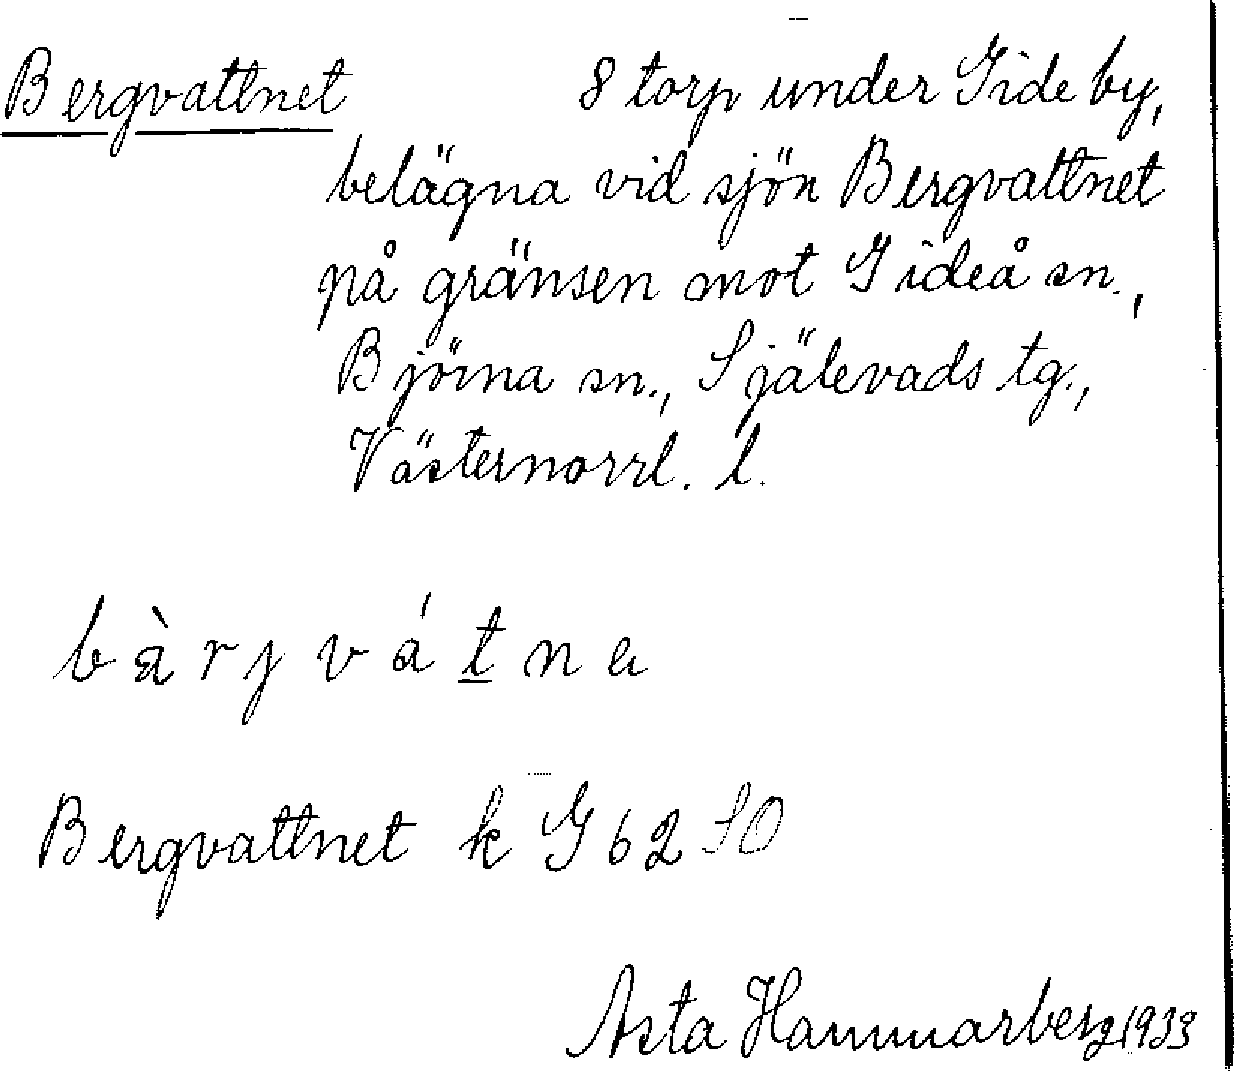 Bergvattnet 8 torp under Gide by,
belägna vid sjön Bergvattnet
på gränsen mot Gideå sn.,
Björna sn., Själevads tg.,
Västernorrl. l.
bàrjvátna
Bergvattnet k G 62 SO
Asta Hammarberg 1933